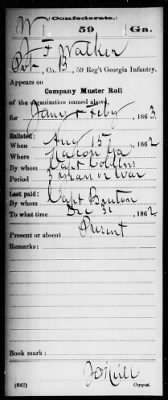 W (Confederate.) 59 Ga.
J F Walker
Pvt, Co. B, 59 Reg't Georgia Infantry.
Appears on
Company Muster Roll
of the organization named above,
for Jany & Feby, 1863
Enlisted:
When Aug 15, 1862
Where Macon Ga
By whom Capt Collins
Period 3 years or war
Last paid:
By whom Capt Bouton
To what time Dec 31, 1862
Present or absent Present
Remarks:
Book mark:
(642) Copyist.